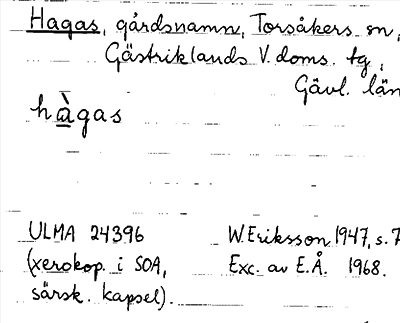 Hagas, gårdsnamn, Torsåkers sn,
Gästriklands V. doms. tg,
Gävl. län
hàgas
ULMA 24396 W. Eriksson 1947, s. 7
(xerokop. i SOA, Exc. av E.Å. 1968.
särsk. kapsel).